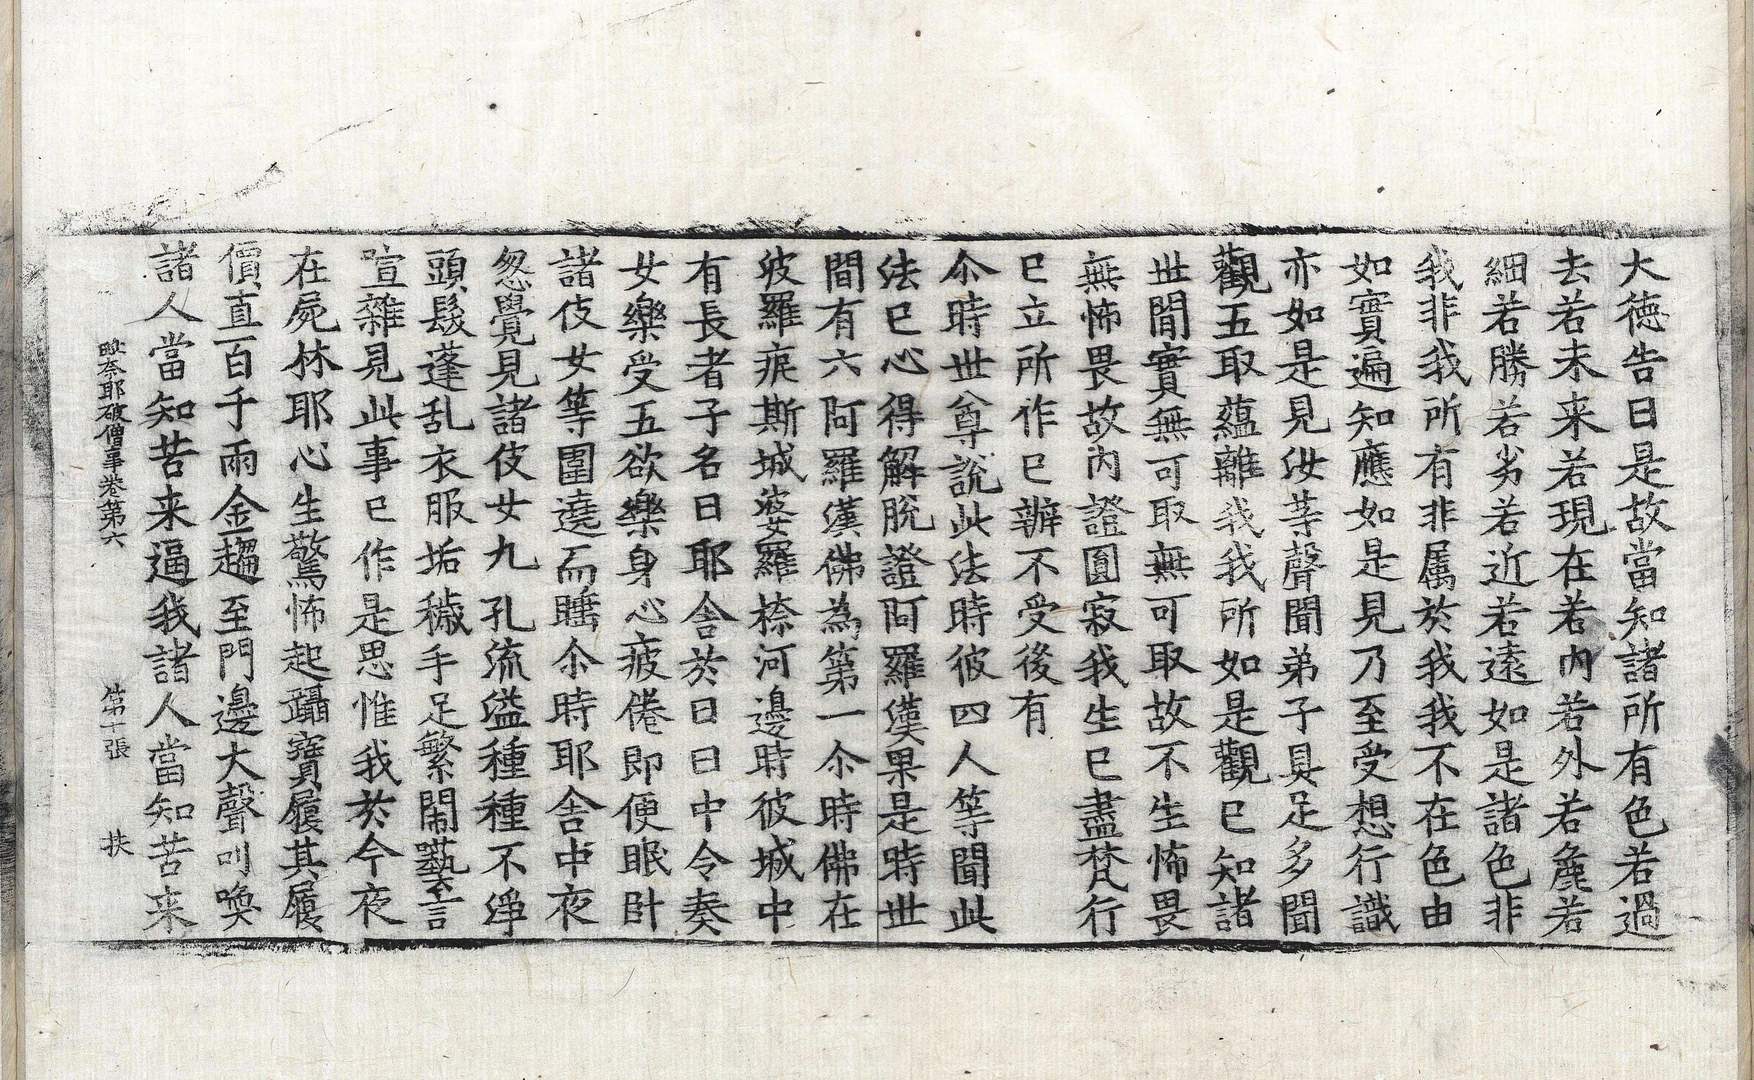 大德告曰是故當知諸所有色若過
去若未来若現在若內若外若麁若
細若勝若劣若近若遠如是諸色非
我非我所有非属於我我不在色由
如實遍知應如是見乃至受想行識
亦如是見汝等聲聞弟子具足多聞
觀五取蘊離我我所如是觀已知諸
世間實無可取無可取故不生怖畏
無怖畏故內證圓寂我生已盡梵行
已立所作已辦不受後有
尒時世尊說此法時彼四人等聞此
法已心得解脫證阿羅漢果是時世
間有六阿羅漢佛為第一尒時佛在
波羅痆斯城婆羅㮈河邊時彼城中
有長者子名曰耶舍於日日中令奏
女樂受五欲樂身心疲倦即便眠卧
諸伎女等圍遶而睡尒時耶舍中夜
忽覺見諸伎女九孔流溢種種不淨
頭髮蓬乱衣服垢穢手足繁鬧囈言
喧雜見此事已作是思惟我於今夜
在屍林耶心生驚怖起躡寶屨其屨
價直百千兩金趨至門邊大聲叫喚
諸人當知苦来逼我諸人當知苦来
毗奈耶破僧事卷第六 第十張 扶